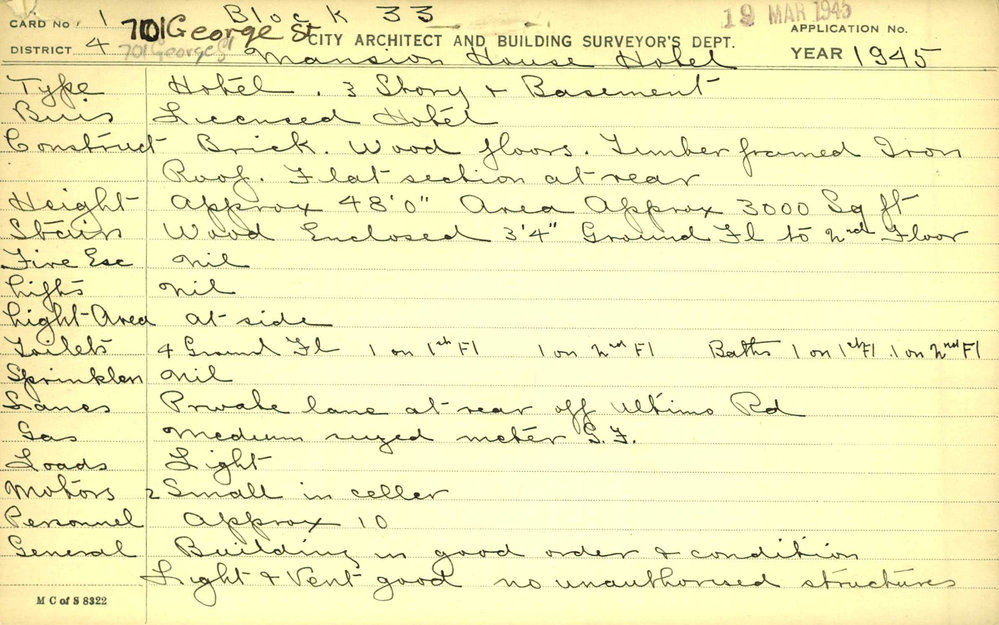 CARD No. 1 Block 33 19 MAR 1945
701 George St CITY ARCHITECT AND BUILDING SURVEYOR'S DEPT. APPLICATION No.
DISTRICT 4 701 George St Mansion House Hotel YEAR 1945
Type Hotel. 3 Story & Basement
Buis Licensed Hotel
Construct Brick. Wood floors. Timber framed Iron
Roof. Flat section at rear
Height Approx 48'0" Area Approx 3000 Sq ft
Stairs Wood Enclosed 3'4" Ground Fl to 2nd Floor
Fire Esc Nil
Lifts Nil
Light Area at side
Toilets 4 Ground Fl 1 on 1st Fl 1 on 2nd Fl Baths 1 on 1st Fl. 1 on 2nd Fl
Sprinklers Nil
Lanes Private lane at rear off Ultimo Rd
Gas Medium sized meter G.F.
Loads Light
Motors 2 Small in celler
Personnel Approx 10
General Building in good order & condition
Light & Vent good no unauthorised structures
M C of S 8322